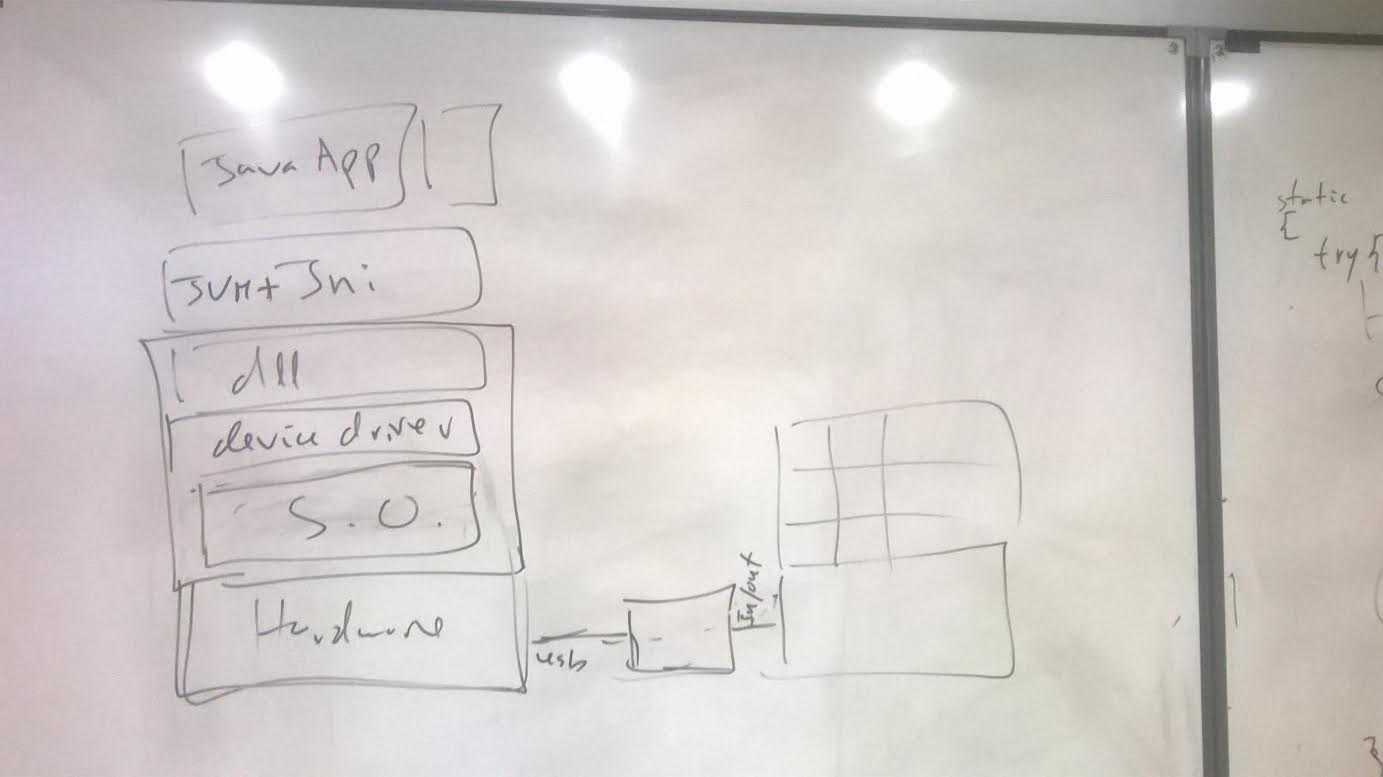 Java App
JVM+ Jni
dll
device driver
S.O.
Hardware
usb
In/out
static
{
try {
}